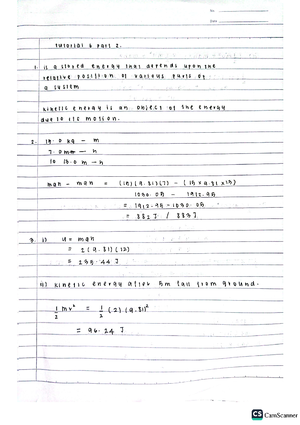 No:
Date:
Tutorial 6 Part 2.
1. is a stored energy that depends upon the
relative position of various parts of
a system
kinetic energy is an object of the energy
due to its motion.
2. 15.0 kg - m
7.0 m - h
10 13.0 m - h
mgh - mgh = (15)(9.81)(7) - (15 × 9.81 × 13)
1030.05 - 1912.95
= 1912.95 - 1030.05
= 882 J / 883 J
3. i) u = mgh
= 2(9.81)(12)
= 235.44 J
ii) kinetic energy after 5m fall from ground.
1/2 mv² = 1/2 (2)(9.81)²
= 96.24 J
CS CamScanner